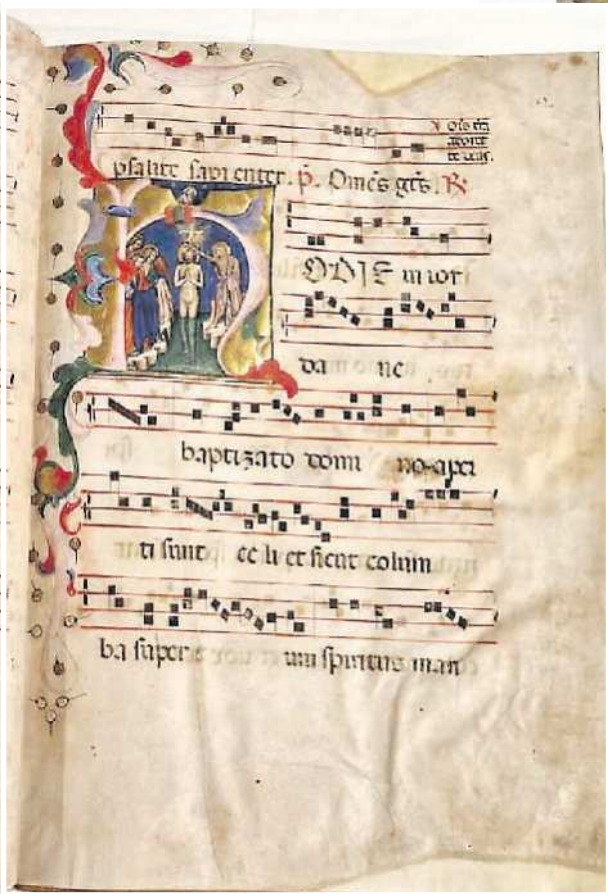 psalite sapienter. p̄. Om̄es gtēs. R
HODIE in ior
da ne
baptizato domi no aperi
ti sunt ce li et sicut colum
ba super um spiritus man